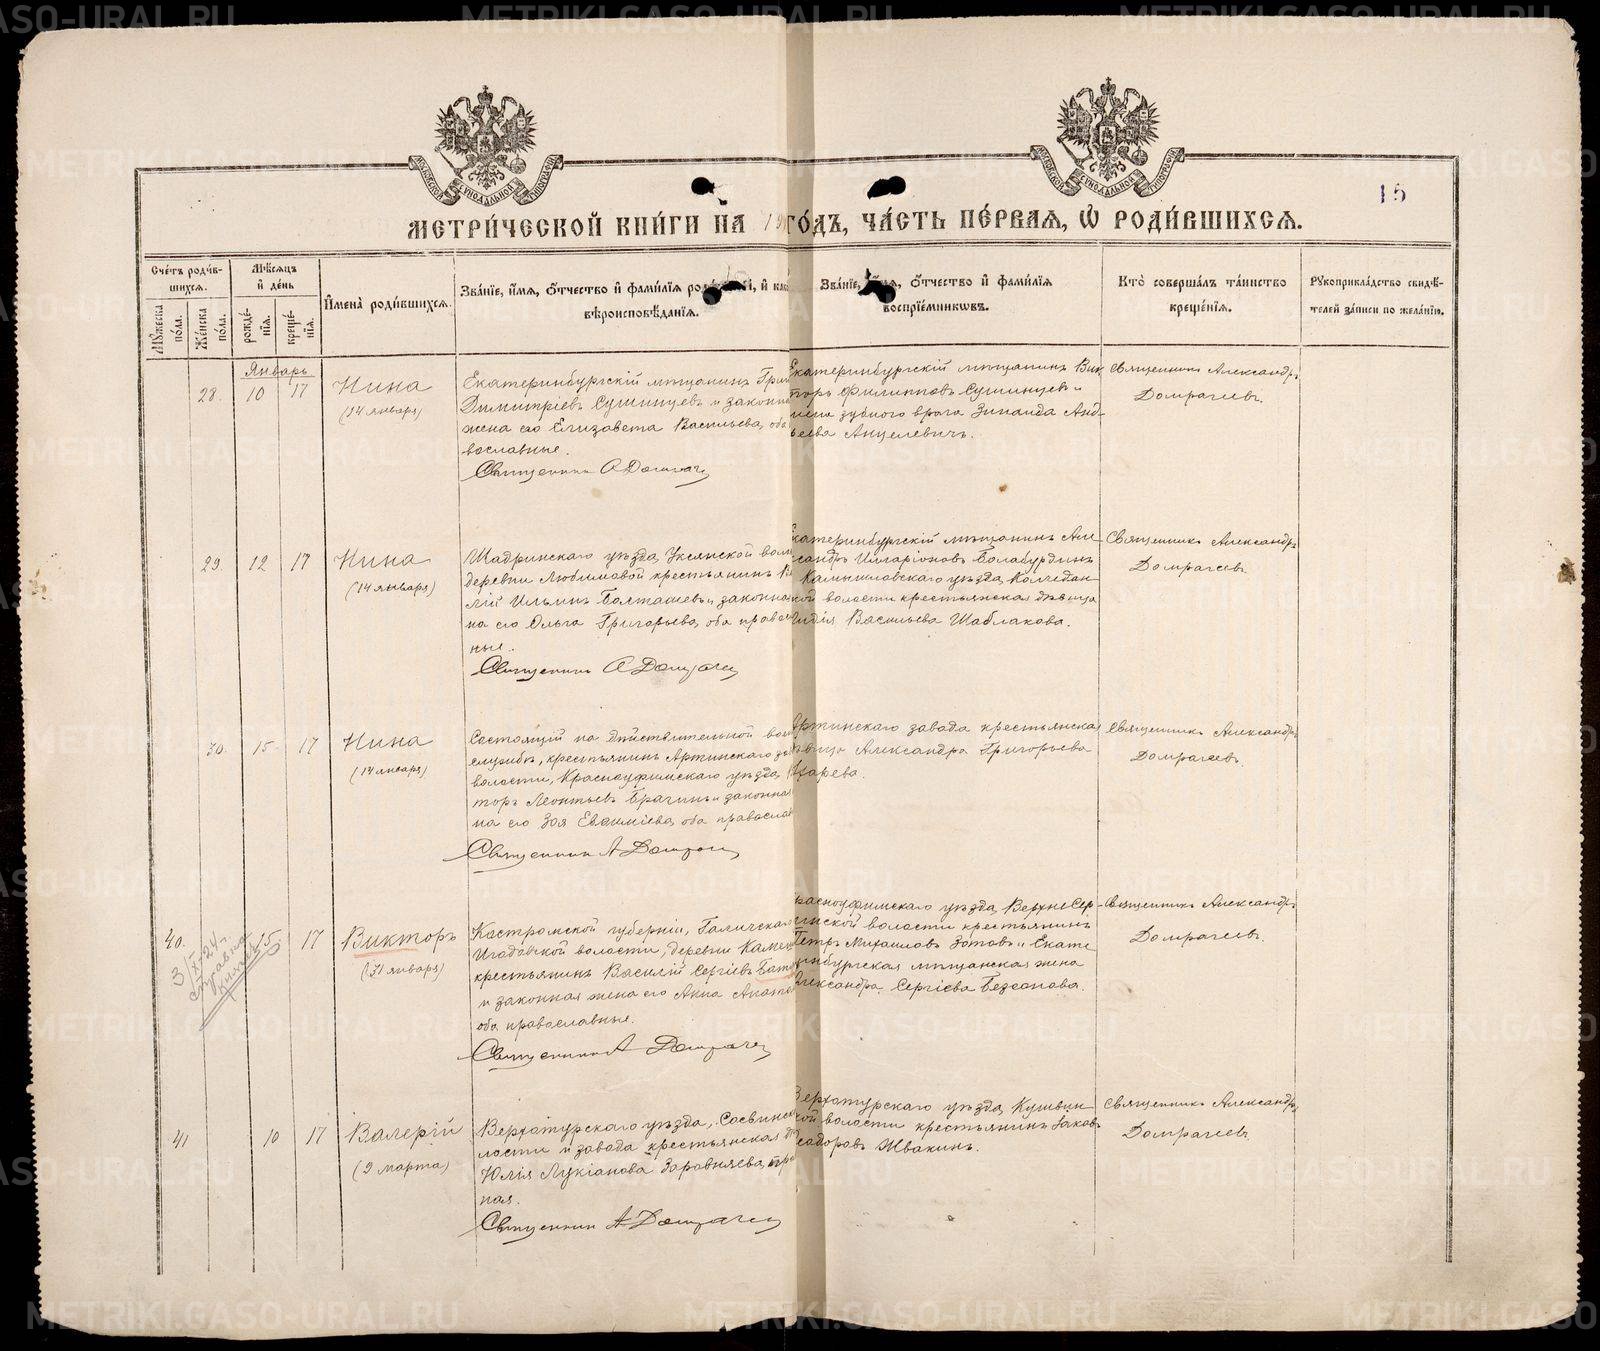 15
МЕТРИ́ЧЕСКОЙ КНИ́ГИ НА 19 ГО́ДЪ, ЧА́СТЬ ПЕ́РВАЯ, Ѡ҆ РОДИ́ВШИХСЯ.
Сче́тъ роди́в-
шихся.
Мꙋ́жеска по́ла.
Же́нска по́ла.
Мѣ́сяцъ и҆ де́нь
рожде́-нїя.
креще́-нїя.
И҆мена̀ роди́вшихся.
Зва́нїе, и҆́мя, ѻ҆́тчество и҆ фами́лїя и҆
вѣроисповѣ́данїя.
Зва́нїе, ѻ҆́тчество и҆ фами́лїя
воспрїе́мникѡвъ.
Кто̀ соверша́лъ та́инство
креще́нїя.
Рꙋкоприкла́дство свидѣ́-
телей за́писи по жела́нїю.
Январь
28. 10 17 Нина
(14 января)
Екатеринбургскій мѣщанинъ
Димитріевъ Сушинцевъ и законна
жена его Елизавета Васильева, оба
вославные.
Священникъ А Домрачев
Екатеринбургскій мѣщанинъ Вик
торъ Филипповъ Сушинцевъ и
жена зубного врача Зинаида Анд-
Анцелевичъ.
Священникъ Александръ
Домрачевъ.
29. 12 17 Нина
(14 января)
Шадринскаго уѣзда, Уксянской воло
деревни Любимовой крестьянинъ
лій Ильинъ Балташевъ и законна
на его Ольга Григорьева, оба правос
ные.
Священникъ А Домрачев
Екатеринбургскій мѣщанинъ Але-
ксандръ Иларіоновъ Балабурдинъ
Камышловскаго уѣзда, Колчедан
ской волости крестьянская дѣвица
Лидія Васильева Шаблакова.
Священникъ Александръ
Домрачевъ.
30. 15 17 Нина
(14 января)
Состоящій на дѣйствительной вое
службѣ, крестьянинъ Артинскаго за
волости, Красноуфимскаго уѣзда,
торъ Леонтьевъ Брагинъ и законна
на его Зоя Евѳиміева, оба православ
Священникъ А Домрачев
Артинскаго завода крестьянская
дѣвица Александра Григорьева
Священникъ Александръ
Домрачевъ.
40. 15 17 Викторъ
(31 января)
3/XI-24 г.
справка
Костромской губерніи, Галичскаго
волости, деревни Камен
крестьянинъ Василій Сергіевъ
и законная жена его Анна
оба православные.
Священникъ А Домрачев
Красноуфимскаго уѣзда, Верхне-Сер-
гинской волости крестьянинъ
Петръ Михаиловъ Зотовъ и Екате
ринбургская мѣщанская жена
Александра Сергіева Безсонова.
Священникъ Александръ
Домрачевъ.
41 10 17 Валерій
(9 марта)
Верхотурскаго уѣзда, Сосвинск
лости и завода крестьянская
Юлія Лукіанова Заравняева, пра
ная.
Священникъ А Домрачев
Верхотурскаго уѣзда, Кушвин
ской волости крестьянинъ Іаков
Ѳеодоровъ Жвакинъ.
Священникъ Александръ
Домрачевъ.
METRIKI.GASO-URAL.RU